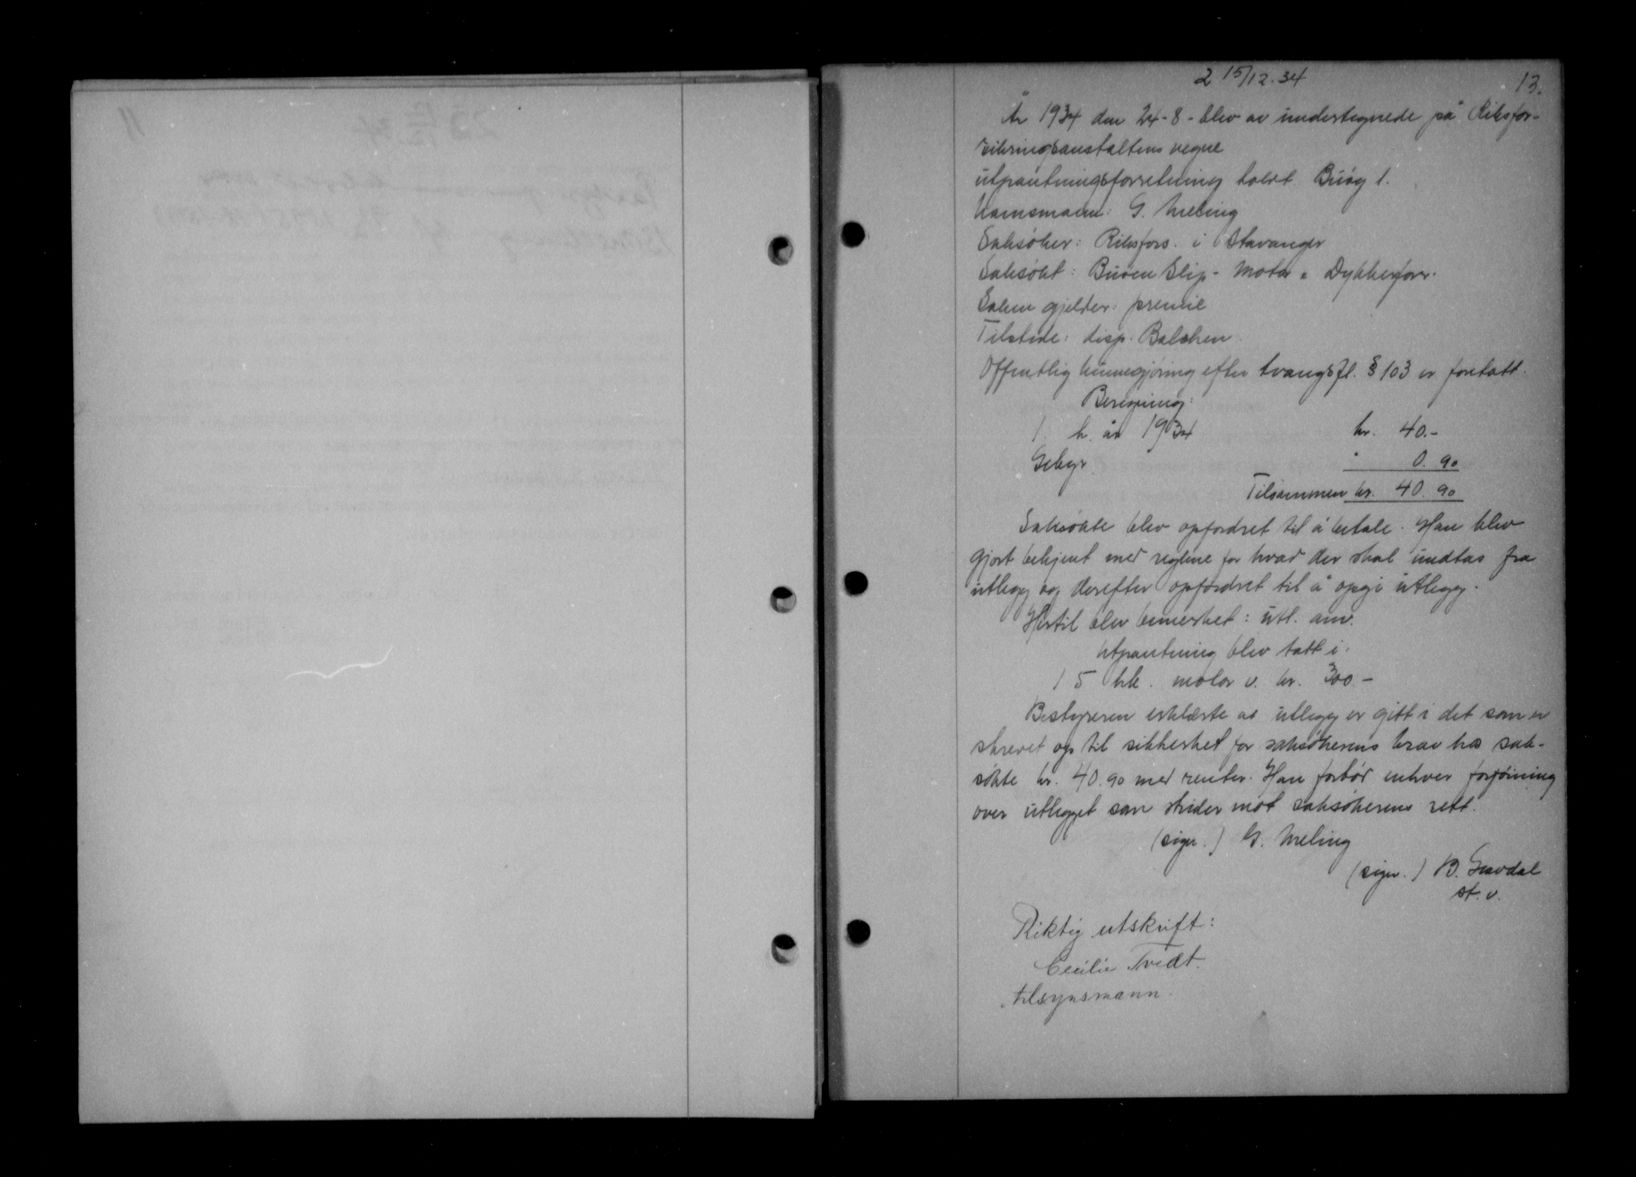 2 15/12-34
13.
År 1934 den 24-8- blev av undertegnede på Riksfor-
sikringsanstaltens vegne
utpantningsforretning holdt Buøy 1.
Navnsmann: G. Meling
Saksøker: Riksfors. i Stavanger
Saksøkt: Buøen Slip- Motor " Dykkerforr.
Saken gjelder: premie
Tilstede: disp. Balchen.
Offentlig kunngjøring efter tvangsfl. § 103 er foretatt.
Beregning:
1. h. år 1934 kr. 40.-
Gebyr " 0.90
Tilsammen kr. 40.90
Saksøkte blev opfordret til å betale. Han blev
gjort bekjent med reglene for hvad der skal undtas fra
utlegg og derefter opfordret til å opgi utlegg.
Hertil blev bemerket: utl. anv.
Utpantning blev tatt i:
1 5 hk. motor v. kr. 300.-
Bestyreren erklærte at utlegg er gitt i det som er
skrevet op til sikkerhet for saksøkerens krav hos sak-
søkte kr. 40.90 med renter. Han forbød enhver forføining
over utlegget som strider mot saksøkerens rett.
(sign.) G. Meling
(sign.) B. Gravdal
st. v.
Riktig utskrift:
Cecilie Tvedt.
tilsynsmann.